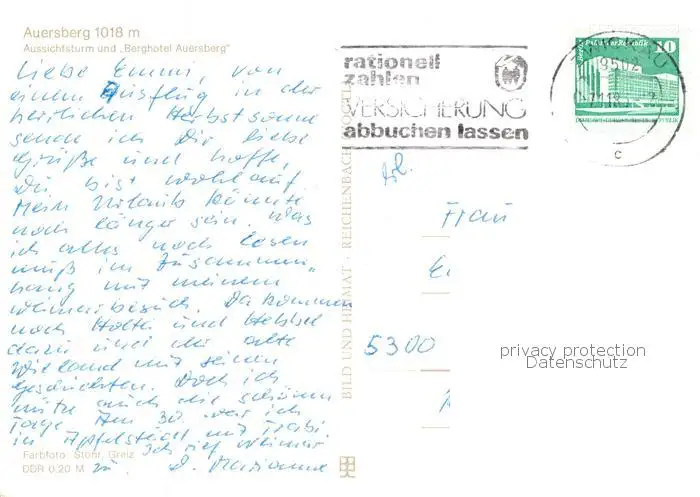 Auersberg 1018 m
Aussichtsturm und „Berghotel Auersberg"
Liebe Emmi, von
einem Ausflug in der
herrlichen Herbstsonne
sende ich Dir liebe
Grüße und hoffe,
Du bist wohlauf.
Mein Urlaub könnte
noch länger sein. Was
ich alles noch lesen
muß im Zusammen-
hang mit meinem
Weimarbesuch. Da kommen
noch Holtei und Hebbel
dazu und der alte
Wieland mit seinen
Geschichten. Doch ich
nutze auch die schönen
Tage. Am 30. war ich
in Apfelstädt mit Trabi
Ich rief Weimar
D. Marianne
Farbfoto: Stöhr, Greiz
DDR 0,20 M
BILD UND HEIMAT · REICHENBACH
rationell
zahlen
VERSICHERUNG
abbuchen lassen
9502
c
10
Frau
5300
privacy protection
Datenschutz